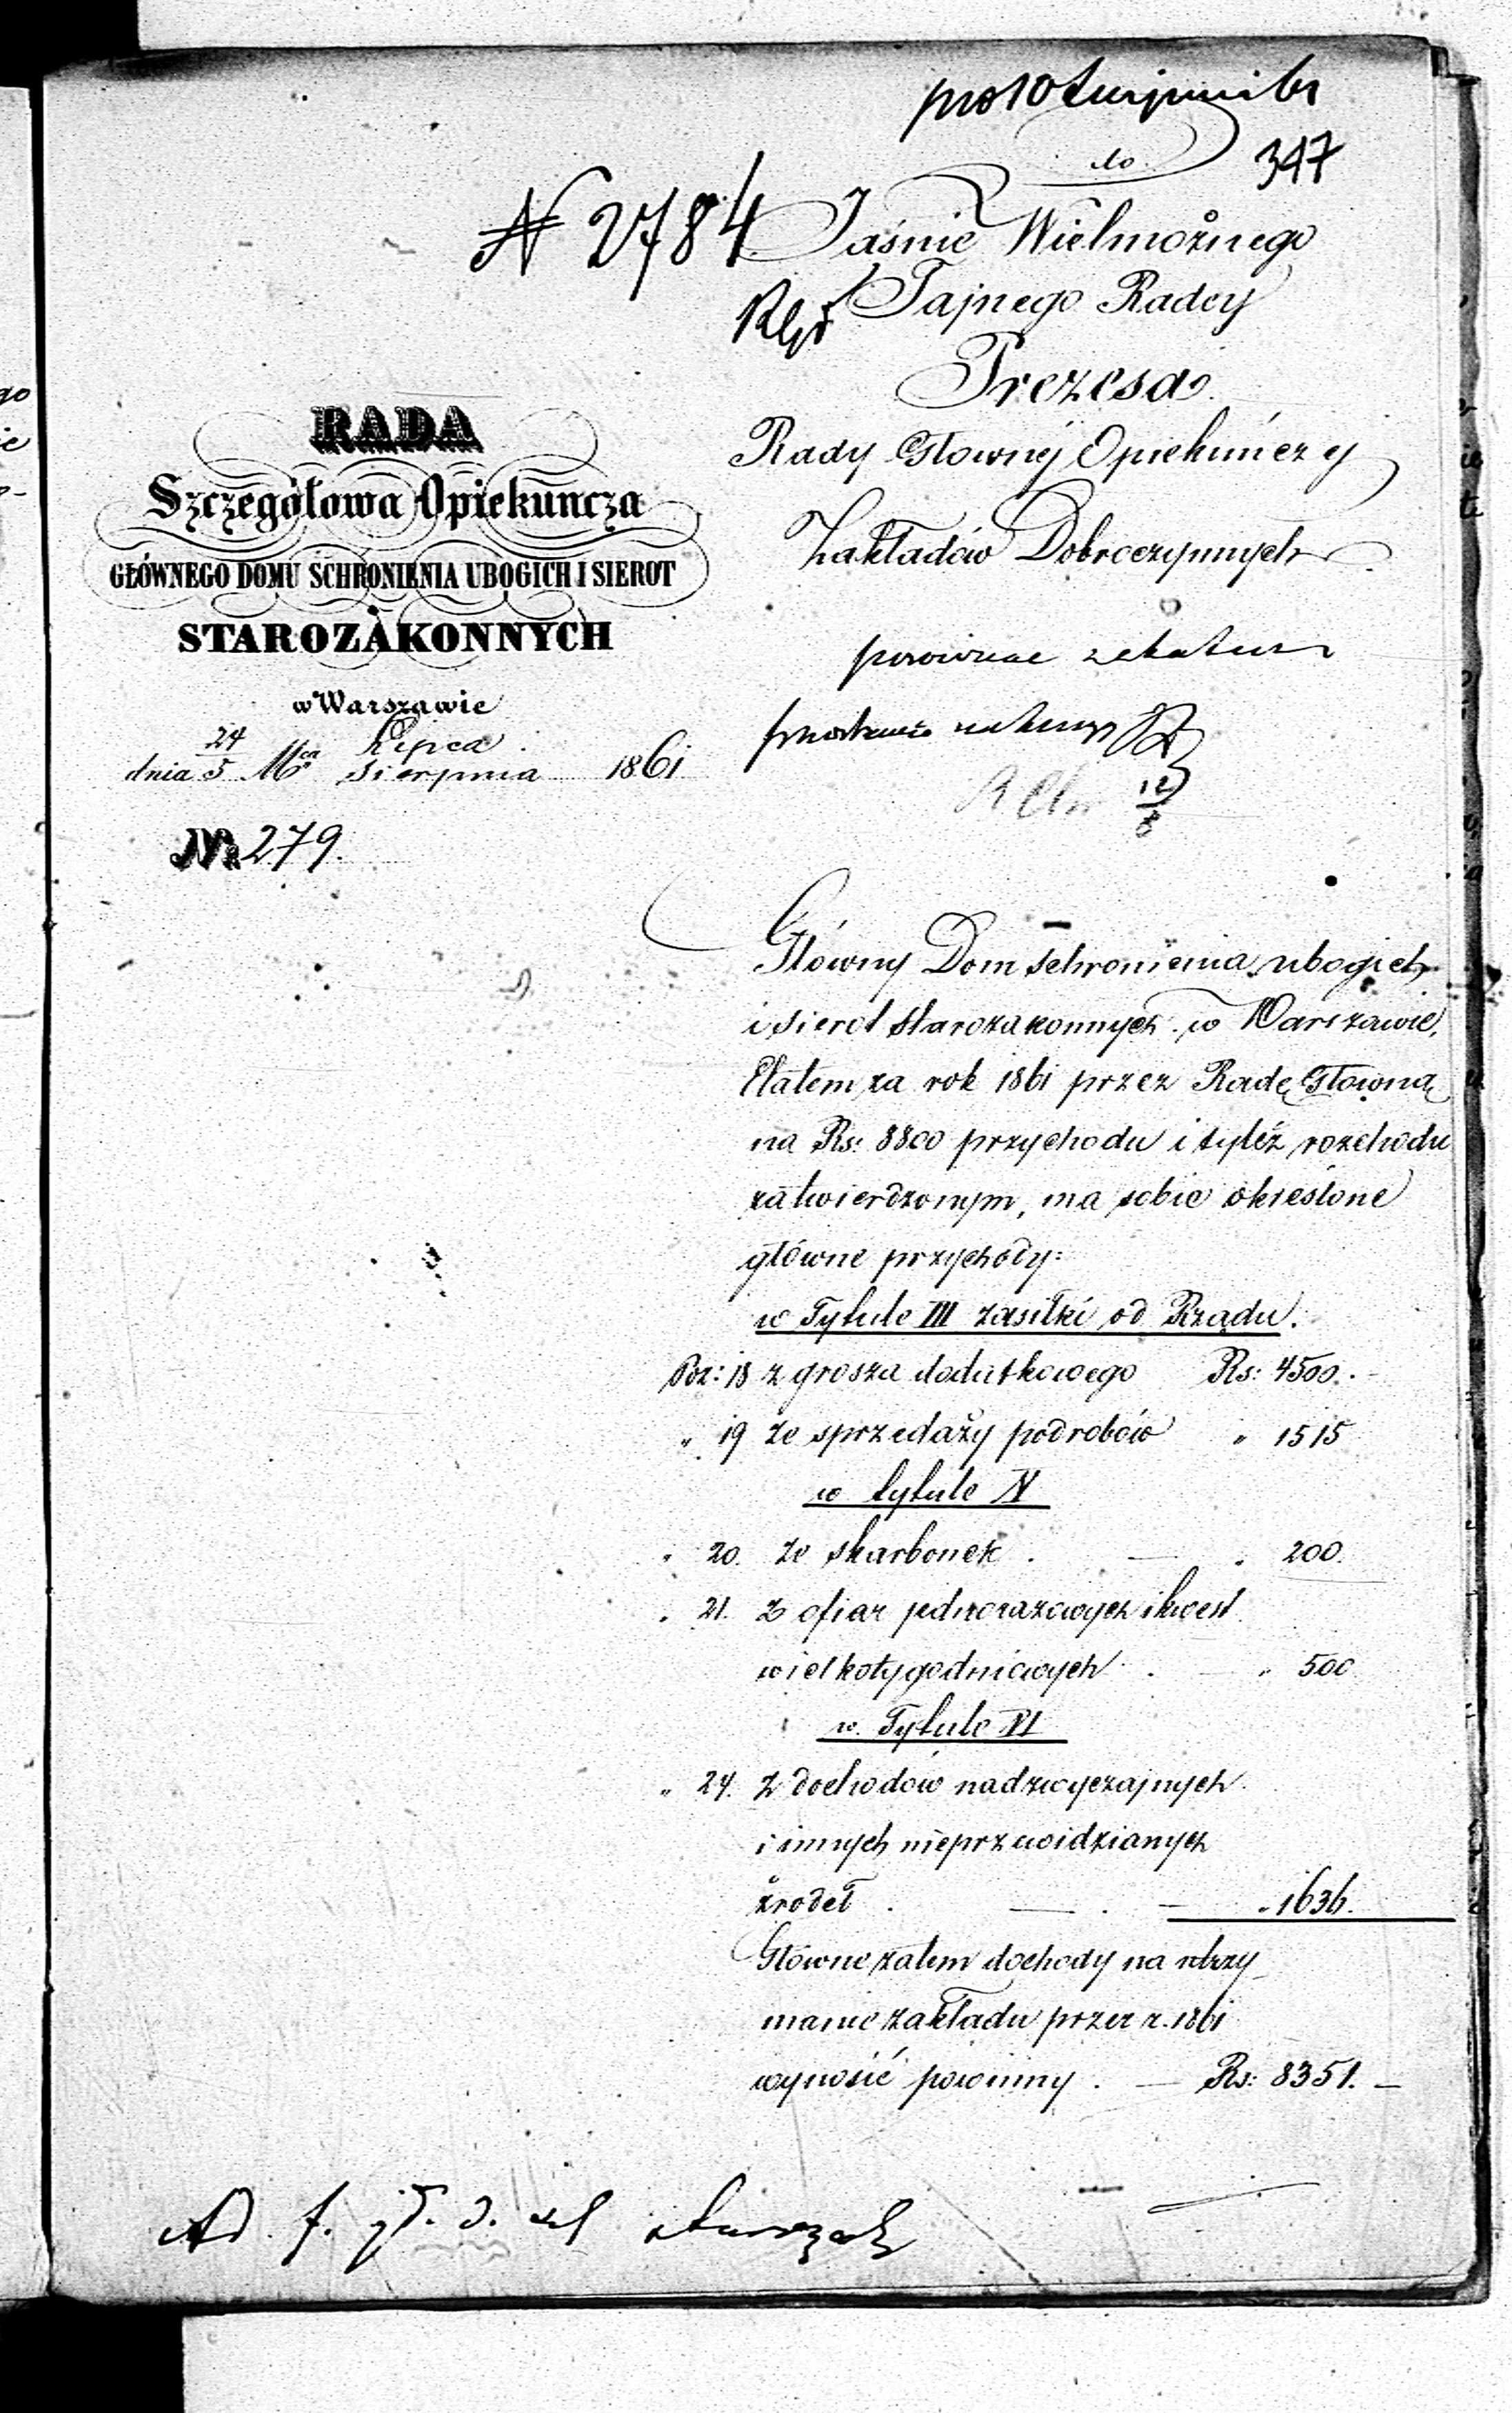 do
347
№ 2784
Jaśnie Wielmożnego
Tajnego Radcy
Prezesa
Rady Głownéj Opiekuńczéj
Zakładów Dobroczynnych
RADA
Szczegółowa Opiekuńcza
GŁÓWNEGO DOMU SCHRONIENIA UBOGICH I SIEROT
STAROZAKONNYCH
w Warszawie
24 Lipca
dnia 5 Mca Sierpnia 1861
№ 279.
12/8
Główny Dom schronienia ubogich
i sierot starozakonnych w Warszawie,
Etatem za rok 1861 przez Radę Głowną
na Rs: 8800 przychodu i tyléż rozchodu
zatwierdzonym, ma sobie okreslone
główne przychody:
w Tytule III zasiłki od Rządu.
Poz: 18 z grosza dodatkowego Rs: 4500.
" 19 ze sprzedaży podrobów " 1515
w tytule IV
" 20. ze skarbonek . — " 200.
" 21. z ofiar jednorazowych i kwest
wielkotygodniowych . " 500
w. Tytule VI
" 24. z dochodów nadzwyczajnych
i innych nieprzewidzianych
źrodeł . — . — " 1636.
Główne zatem dochody na utrzy
manie zakładu przez r. 1861
wynosić powinny . — Rs: 8351. —